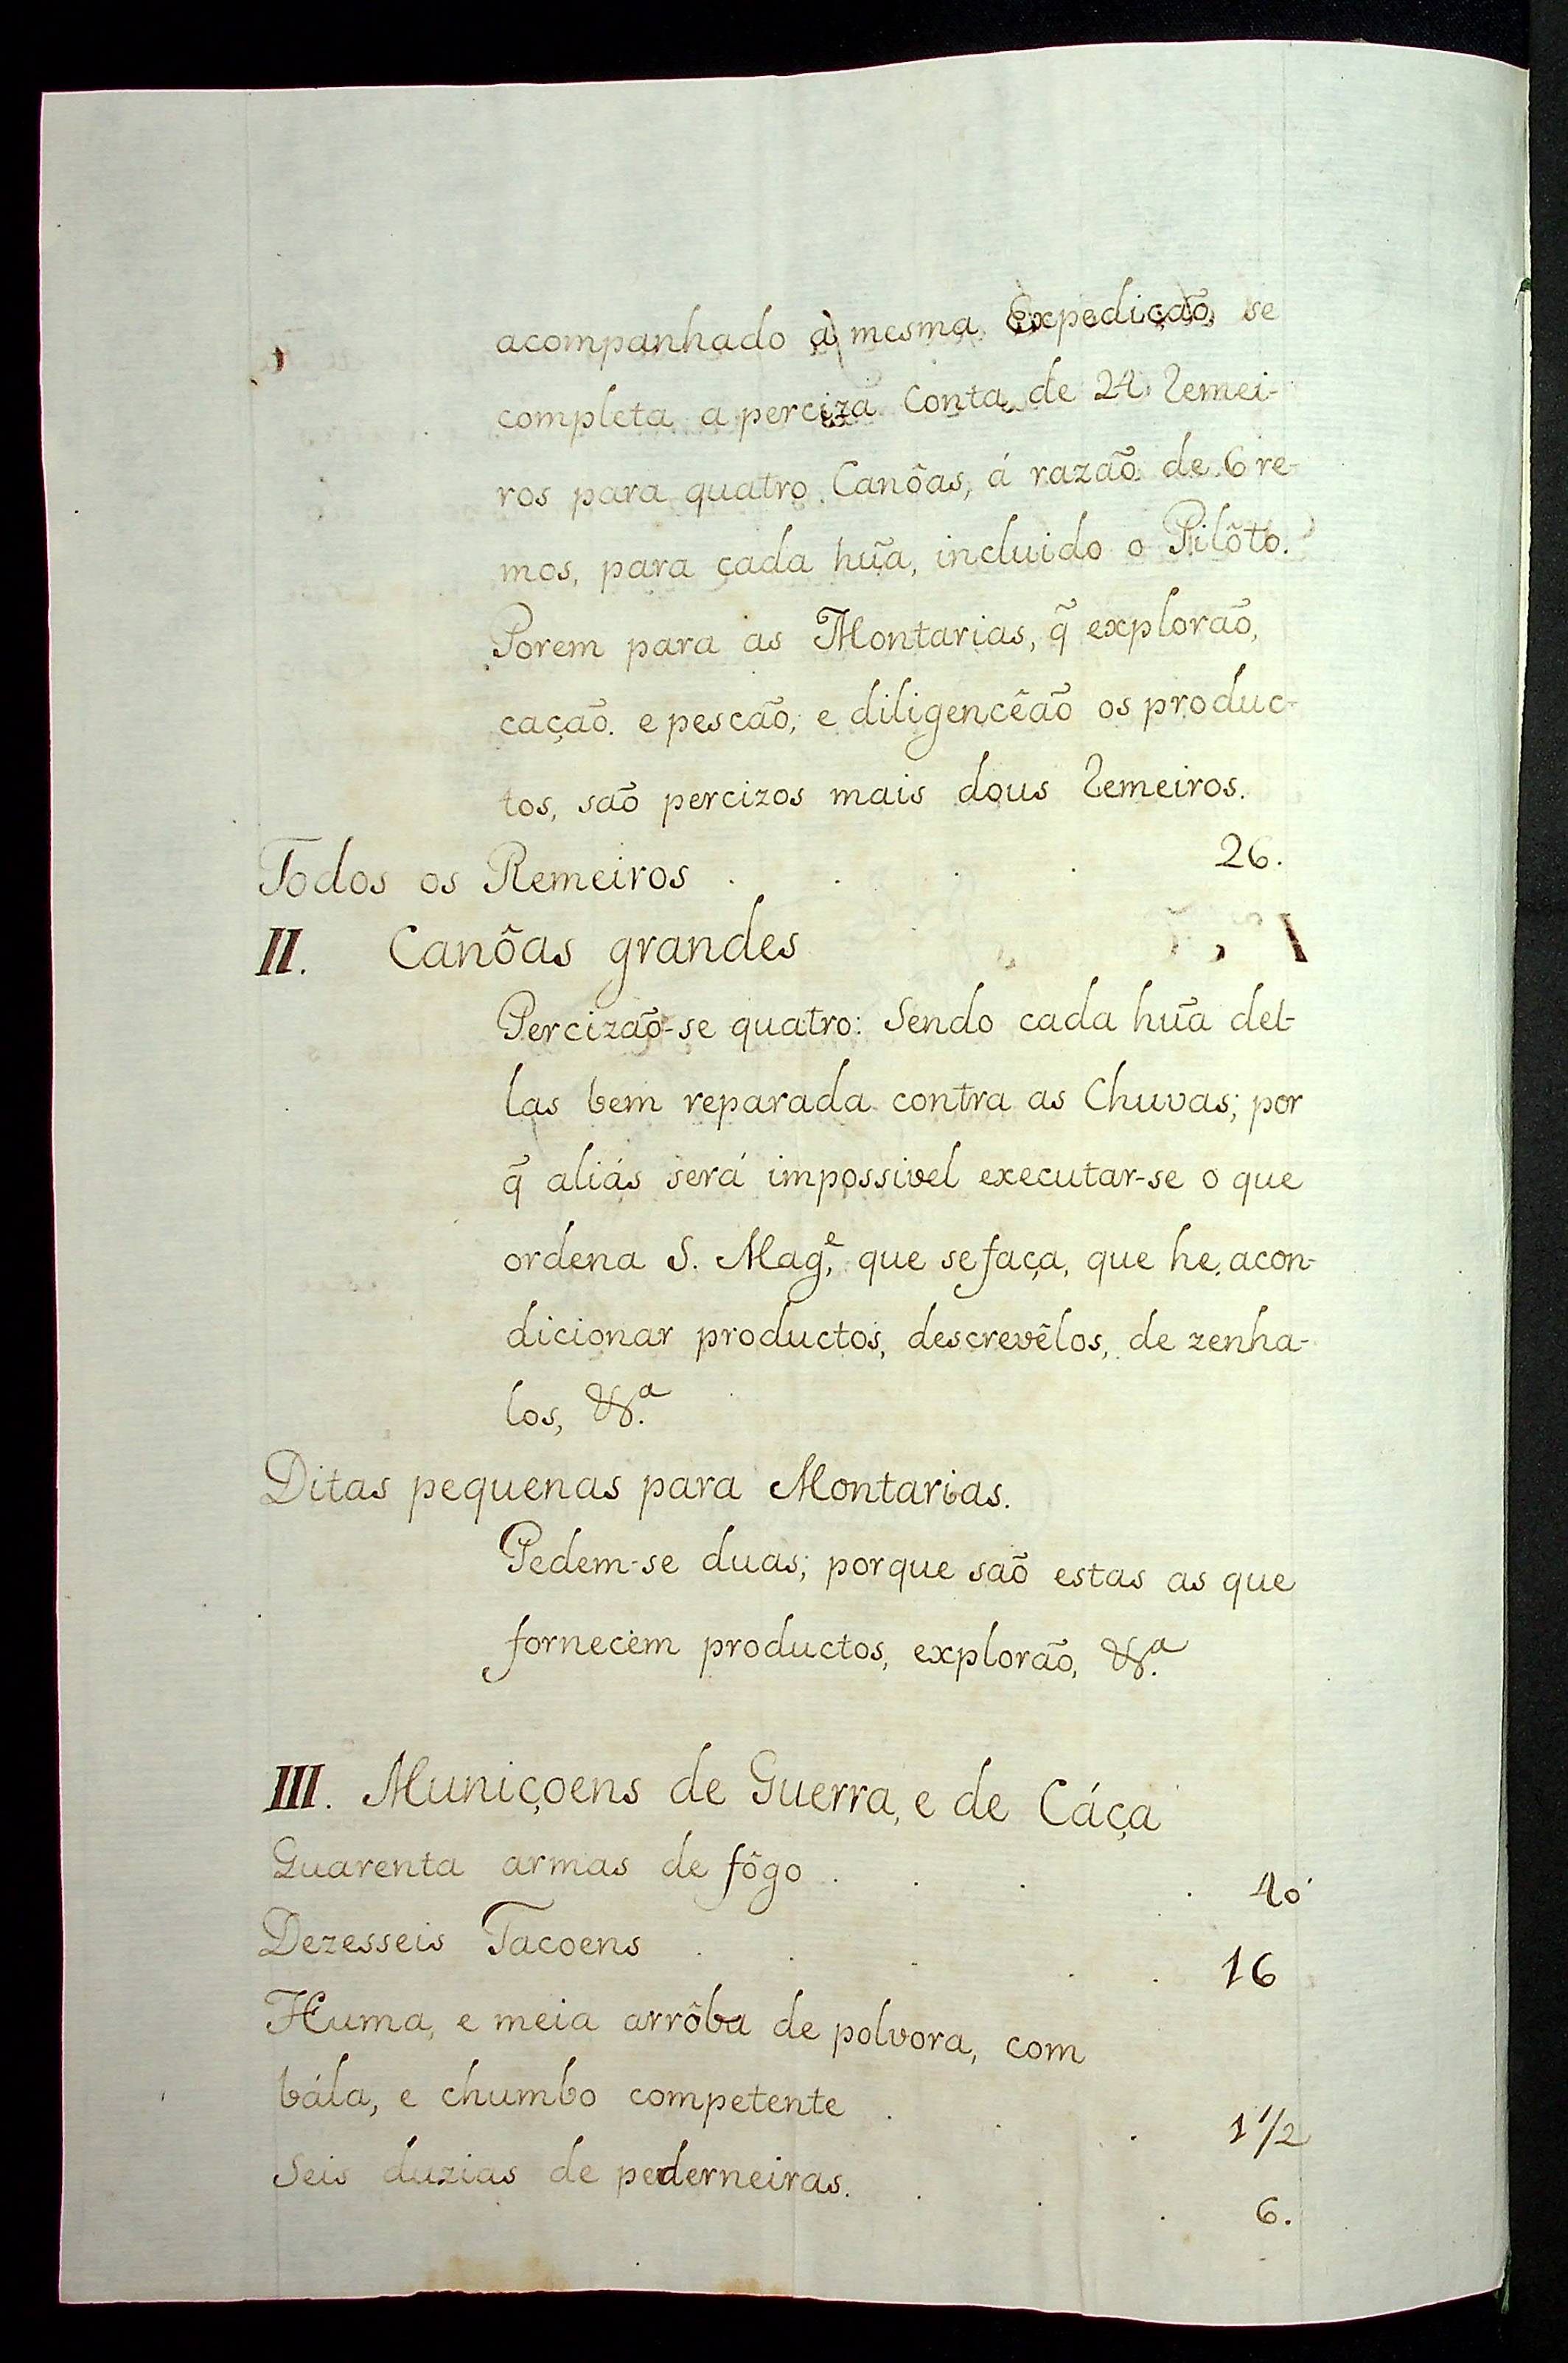 acompanhado à mesma Expedição, se
completa a perciza Conta de 24 Remei-
ros para quatro Canôas, á razão de 6 re-
mos, para cada hũa, incluido o Pilôto.
Porem para as Montarias, q̃ explorão,
cação e pescão, e diligencêão os produc-
tos, são percizos mais dous Remeiros.
Todos os Remeiros . . . . 26.
II. Canôas grandes
Percizão-se quatro: Sendo cada hũa del-
las bem reparada contra as Chuvas; por
q̃ aliás será impossivel executar-se o que
ordena S. Mag.ᵉ, que se faça, que he, acon-
dicionar productos, descrevêlos, de zenha-
los, &.ª
Ditas pequenas para Montarias.
Pedem-se duas; porque são estas as que
fornecem productos, explorão, &.ª
III. Muniçoens de Guerra, e de Cáça
Quarenta armas de fôgo . . . . 40
Dezesseis Tacoens . . . . . 16
Huma, e meia arrôba de polvora, com
bála, e chumbo competente . . . 1 1/2
Seis duzias de pederneiras. . . . 6.